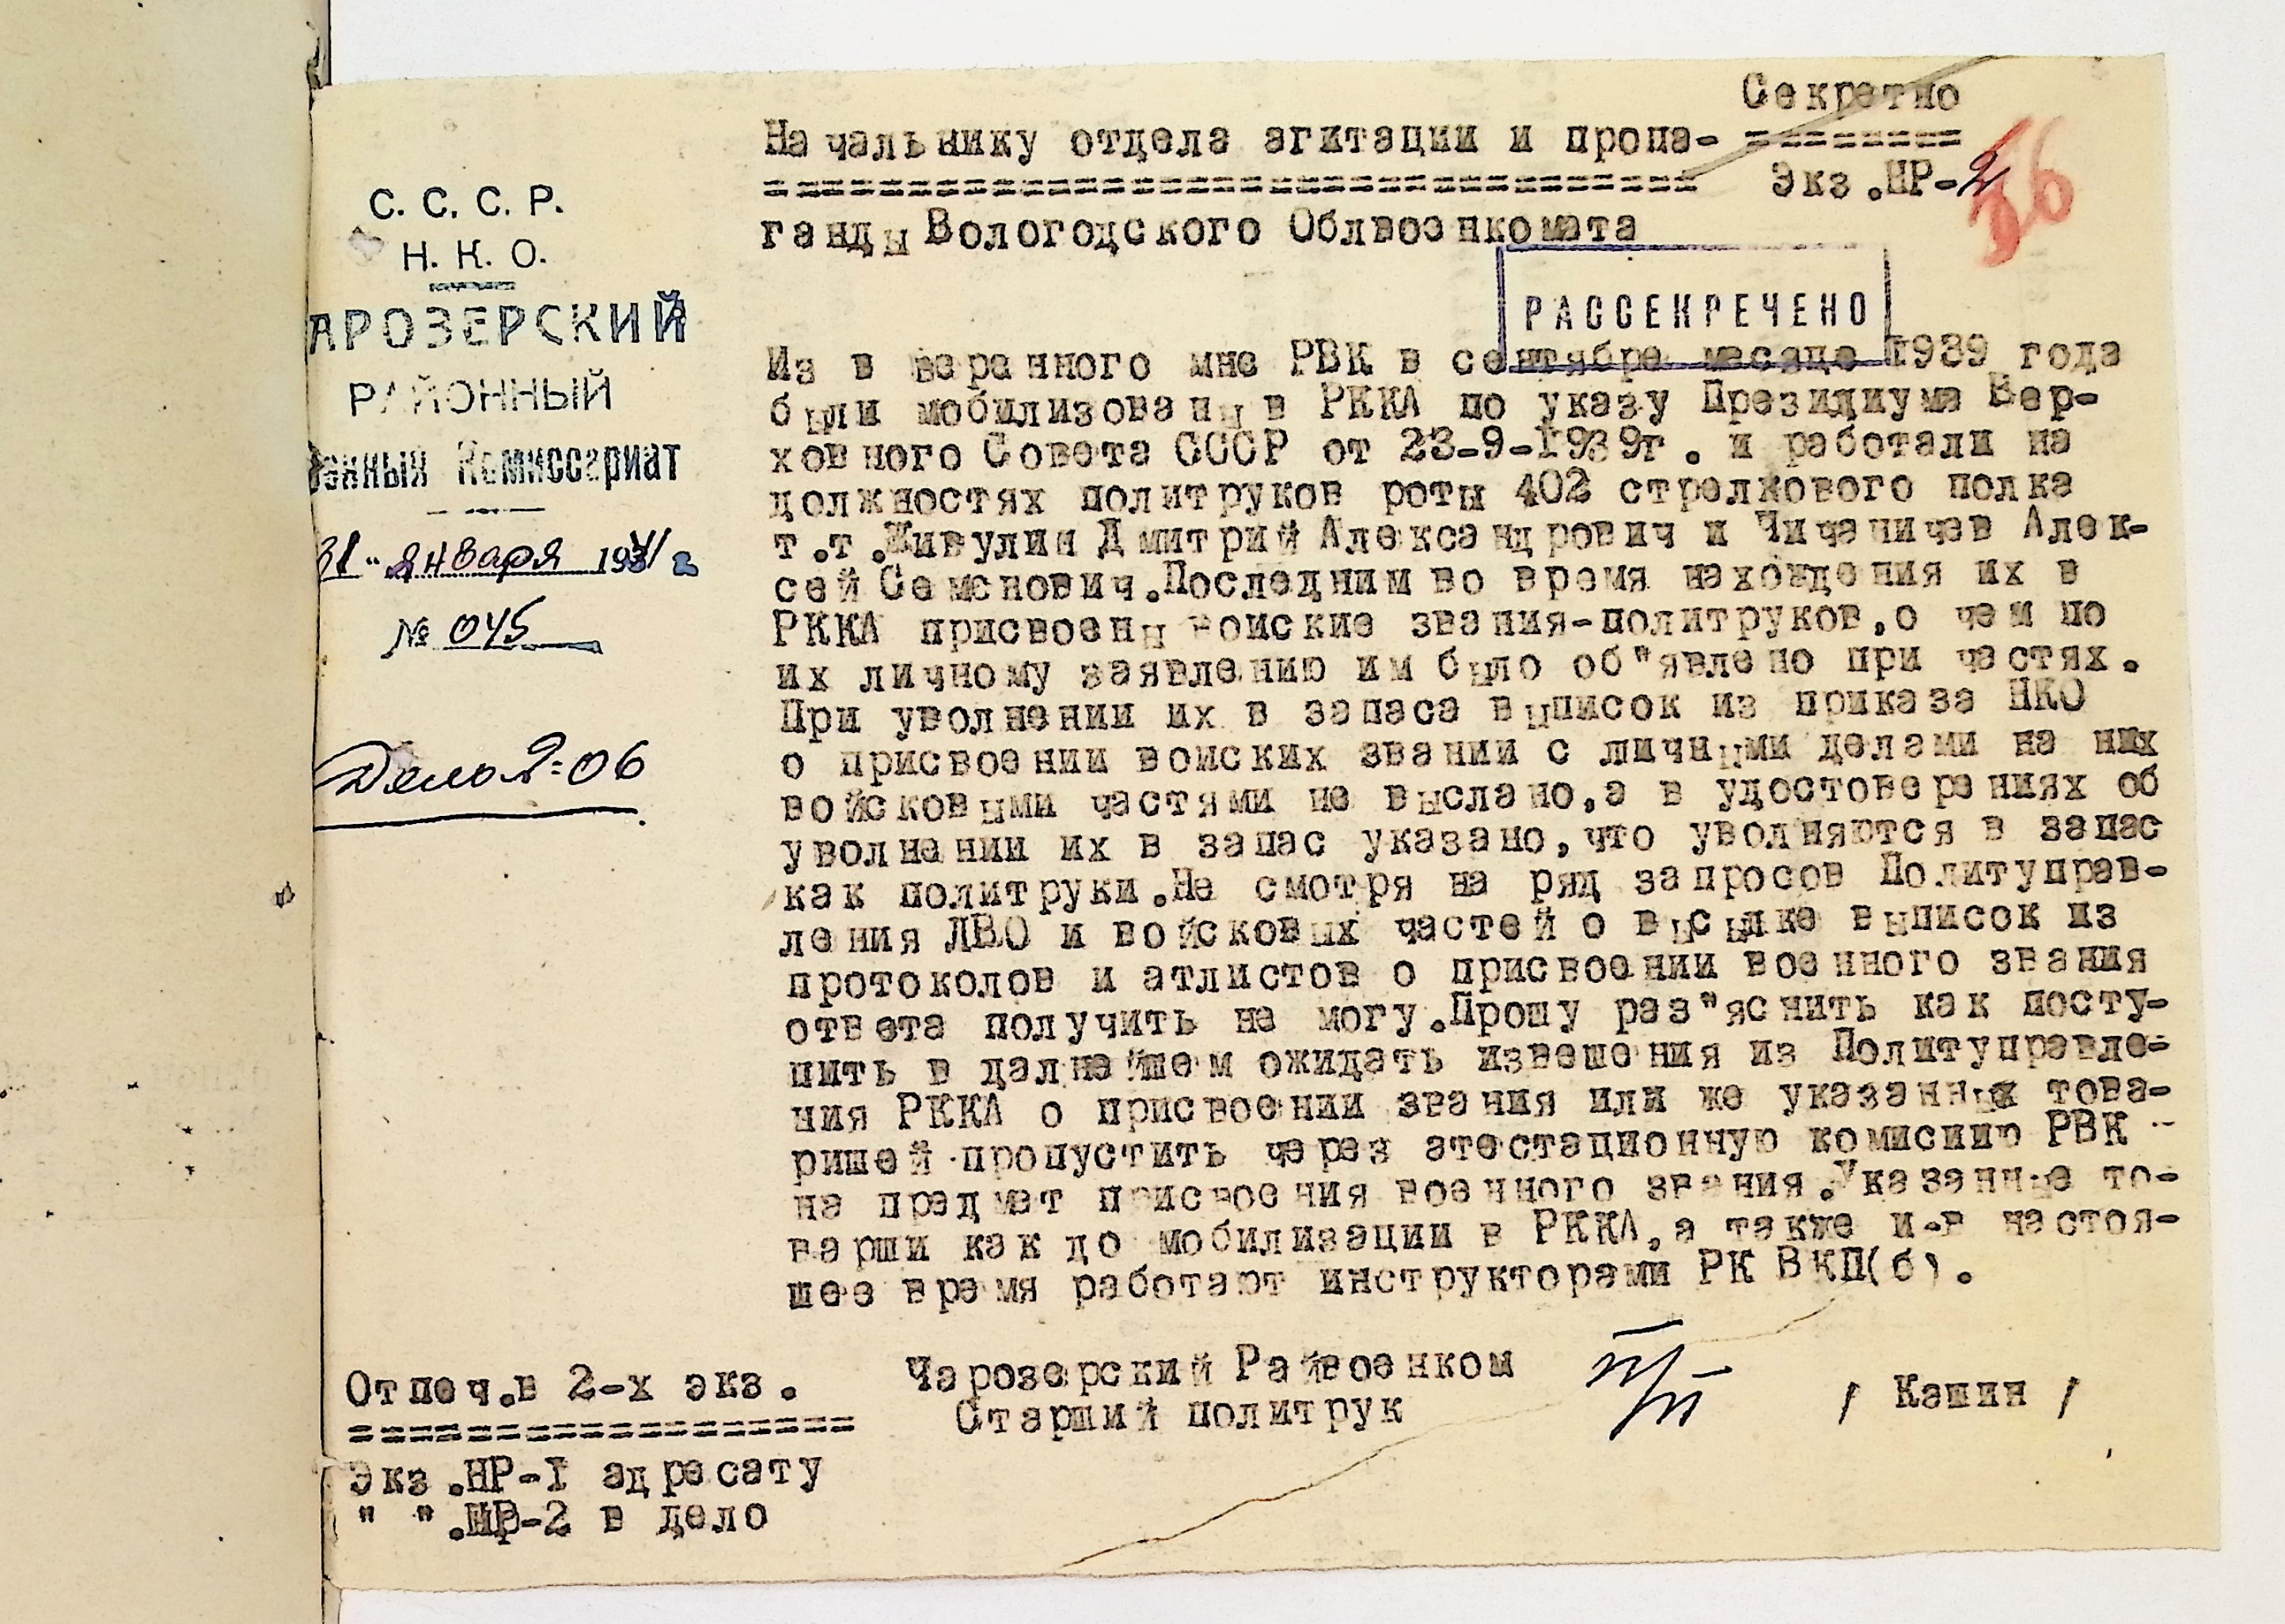 Секретно
Начальнику отдела агитации и пропа-
Экз.НР-2
36
ганды Вологодского Облвоенкомата
С. С. С. Р.
Н. К. О.
АРОЗЕРСКИЙ
РАЙОННЫЙ
Военный Комиссариат
31 " января 1941 г.
№ 045
Дело 2=06
РАССЕКРЕЧЕНО
Из в веранного мне РВК в сентябре месяце 1939 года
были мобилизованы в РККА по указу Президиума Вер-
ховного Совета СССР от 23-9-1939г. и работали на
должностях политруков роты 402 стрелкового полка
т.т.Живулин Дмитрий Александрович и Чичаничев Алек-
сей Семенович.Последним во время нахождения их в
РККА присвоены воиские звания-политруков,о чем по
их личному заявлению им было об"явлено при частях.
При уволнении их в запаса выписок из приказа НКО
о присвоении воиских звании с личными делами на них
войсковыми частями не выслано,а в удостоверениях об
уволнении их в запас указано,что уволняются в запас
как политруки.Не смотря на ряд запросов Политуправ-
ления ЛВО и войсковых частей о высылке выписок из
протоколов и атлистов о присвоении военного звания
ответа получить не могу.Прошу раз"яснить как посту-
пить в далнейшем ожидать извешения из Политуправле-
ния РККА о присвоении звания или же указанных това-
ришей пропустить через атестационную комисию РВК
на предмет присвоения военного звания.Указанные то-
варши как до мобилизации в РККА,а также и-в настоя-
шее время работают инструкторами РК ВКП(б).
Отпеч.в 2-х экз.
Чарозерский Райвоенком
Старший политрук
/ Кашин /
Экз.НР-1 адресату
" ".НР-2 в дело